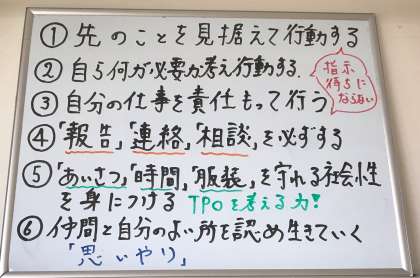 ① 先のことを見据えて行動する
② 自ら何が必要か考え行動する.
指示
待ちに
ならない
③ 自分の仕事を責任もって行う
④「報告」「連絡」「相談」を必ずする
⑤「あいさつ」「時間」「服装」を守れる社会性
を身につける TPOを考える力!
⑥ 仲間と自分のよい所を認め生きていく
「思いやり」